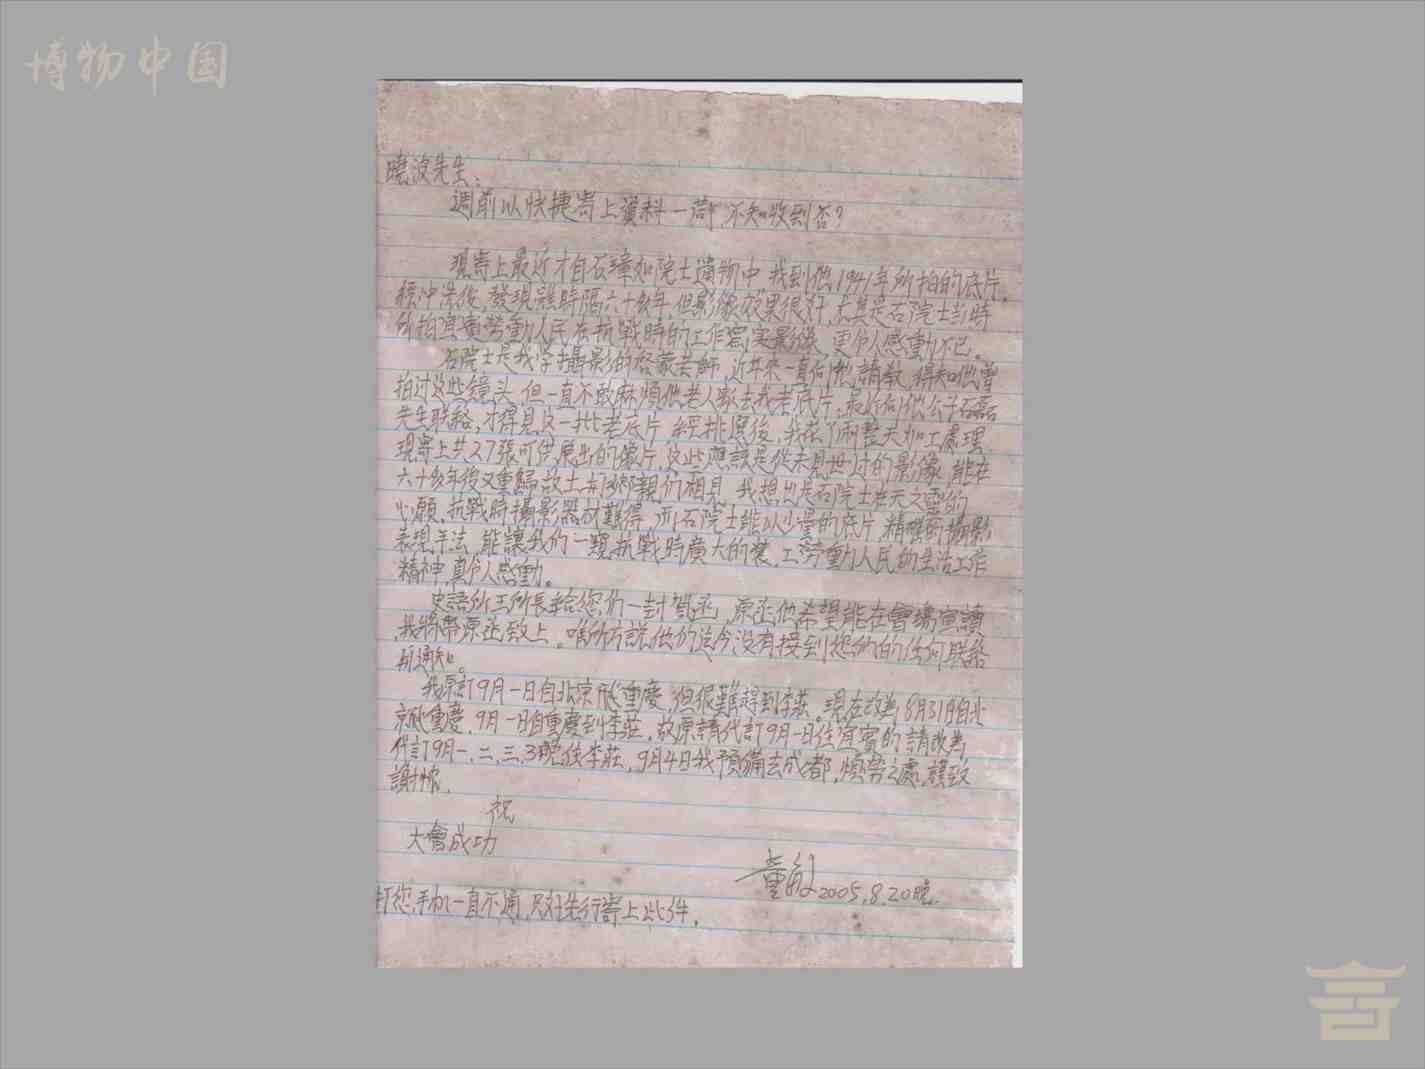 博物中国
曉波先生:
週前以快捷寄上資料一荷,不知收到否?
現寄上最近才自石璋如院士遺物中,找到他1941年所拍的底片,
經沖洗後,發現雖時隔六十多年,但影像效果很好,尤其是石院士当時
所拍 勞動人民在抗戰時的工作寫実影像,更令人感動不已。
石院士是我学攝影的啓蒙老師,近年來一直向他請教,得知他曾
拍过这些鏡头,但一直不敢麻煩他老人家去找老底片,最近向他公子石磊
先生联絡,才得見这一批老底片,経 後,我花了兩整天加工處理
現寄上共27張可供展出的像片,这些應該是從未見世过的影像,能在
六十多年後又重歸故土与 鄉親们相見,我想也是石院士在天之靈的
心願,抗戰時攝影器材難得,而石院士能以少量的底片,精 的攝影
表現手法,能讓我们一覽抗戰時廣大的農、工勞動人民的生活工作
精神,真令人感動。
史語所王所長給您们一封賀函,原函他希望能在會場宣讀
,我將帶原函致上。唯所方説他们迄今没有接到您们的任何联絡
和通知。
我原訂9月一日自北京飛重慶,但很難趕到李莊。現在改為8月31日自北
京飛重慶,9月一日自重慶到李莊,故原請代訂9月一日住宜賓的請改為
代訂9月一、二、三、3晚住李莊,9月4日我預備去成都,煩勞之處,謹致
謝忱,
祝
大會成功
董敏2005.8.20晚.
打您手机一直不通,只好先行寄上此件。